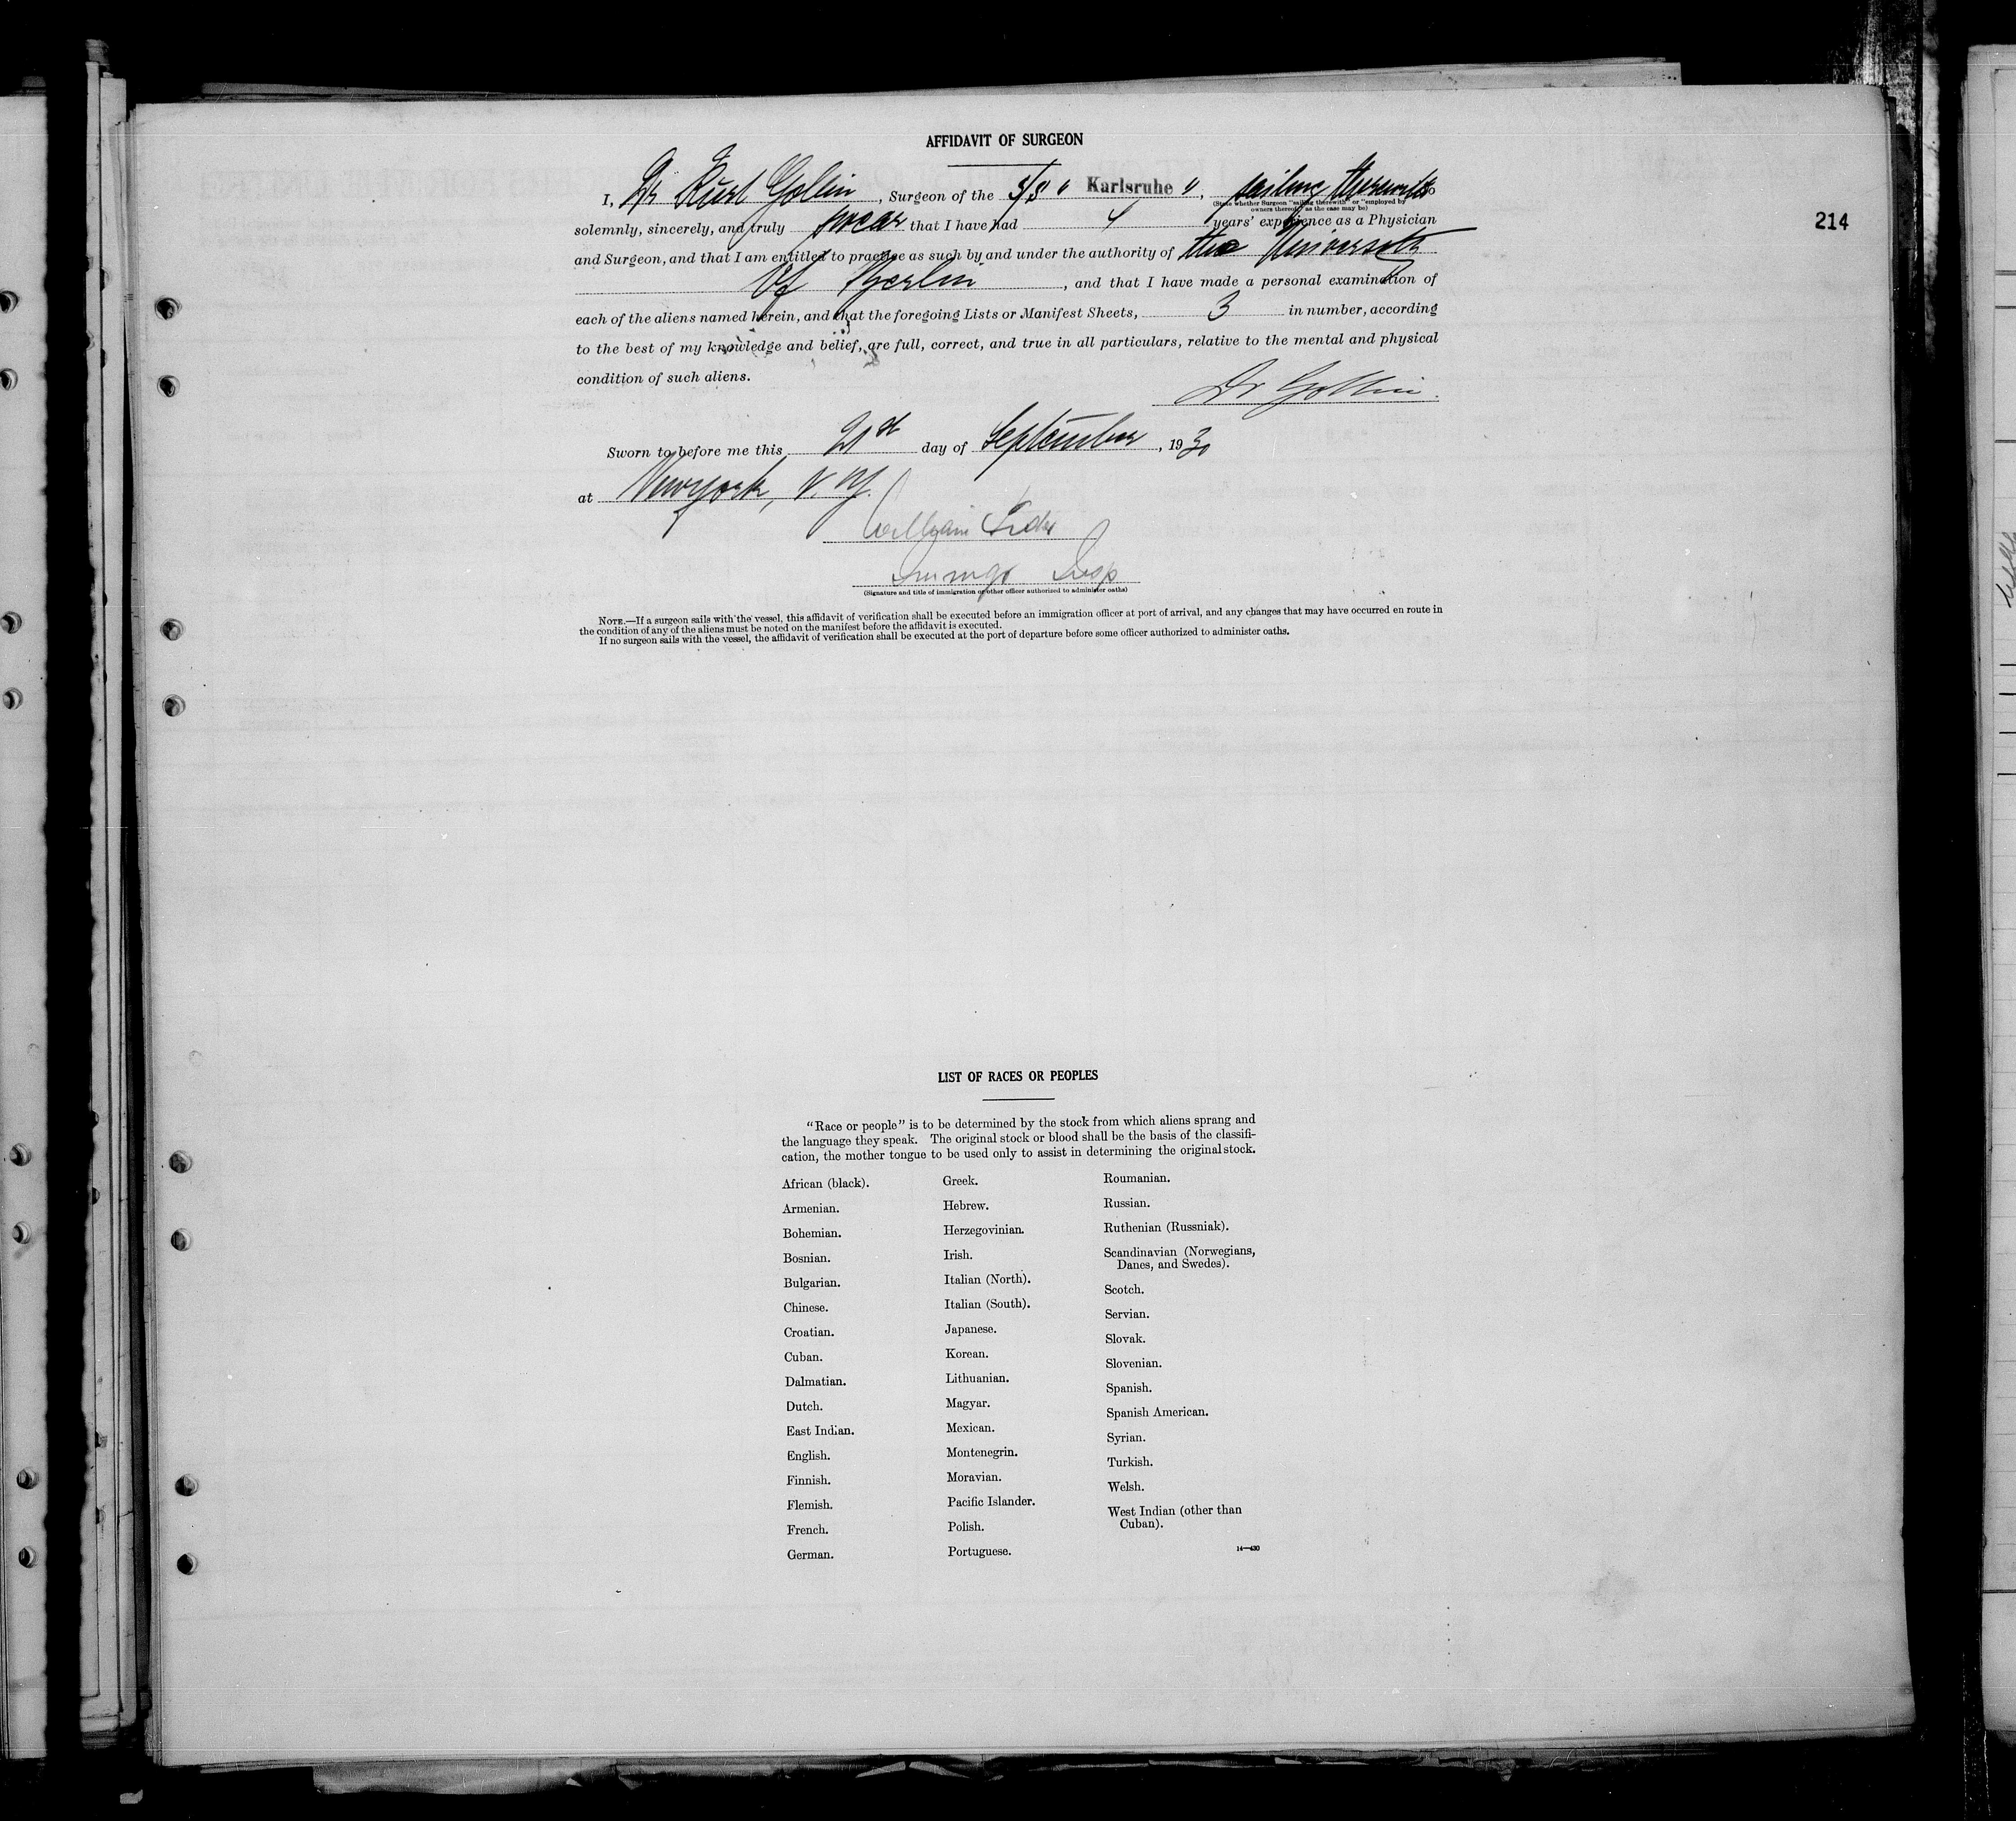 AFFIDAVIT OF SURGEON
I, Dr Kurt Gollin, Surgeon of the S/S " Karlsruhe ", sailing therewith do
(State whether Surgeon "sailing therewith" or "employed by
owners thereof," as the case may be)
solemnly, sincerely, and truly swear that I have had 4 years' experience as a Physician
and Surgeon, and that I am entitled to practice as such by and under the authority of the University
of Berlin, and that I have made a personal examination of
each of the aliens named herein, and that the foregoing Lists or Manifest Sheets, 3 in number, according
to the best of my knowledge and belief, are full, correct, and true in all particulars, relative to the mental and physical
condition of such aliens.
Dr Gollin.
Sworn to before me this 21st day of September, 1930
at New York, N.Y.
William
Immigr Insp
(Signature and title of immigration or other officer authorized to administer oaths)
NOTE.—If a surgeon sails with the vessel, this affidavit of verification shall be executed before an immigration officer at port of arrival, and any changes that may have occurred en route in
the condition of any of the aliens must be noted on the manifest before the affidavit is executed.
If no surgeon sails with the vessel, the affidavit of verification shall be executed at the port of departure before some officer authorized to administer oaths.
214
LIST OF RACES OR PEOPLES
"Race or people" is to be determined by the stock from which aliens sprang and
the language they speak. The original stock or blood shall be the basis of the classifi-
cation, the mother tongue to be used only to assist in determining the original stock.
African (black).
Armenian.
Bohemian.
Bosnian.
Bulgarian.
Chinese.
Croatian.
Cuban.
Dalmatian.
Dutch.
East Indian.
English.
Finnish.
Flemish.
French.
German.
Greek.
Hebrew.
Herzegovinian.
Irish.
Italian (North).
Italian (South).
Japanese.
Korean.
Lithuanian.
Magyar.
Mexican.
Montenegrin.
Moravian.
Pacific Islander.
Polish.
Portuguese.
Roumanian.
Russian.
Ruthenian (Russniak).
Scandinavian (Norwegians,
Danes, and Swedes).
Scotch.
Servian.
Slovak.
Slovenian.
Spanish.
Spanish American.
Syrian.
Turkish.
Welsh.
West Indian (other than
Cuban).
14—430